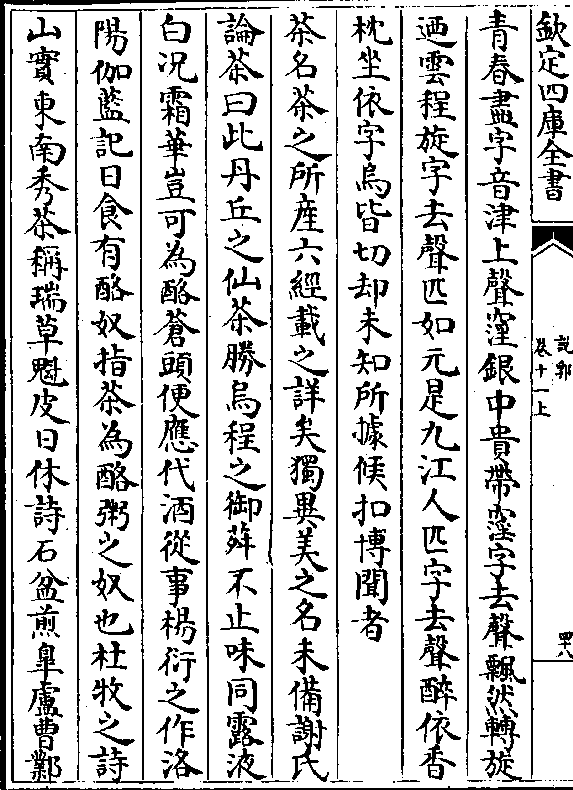 欽定四庫全書
說郛
卷十一上
四十八
青春盡字音津上聲窪銀中貴帶窪字去聲飄然轉旋
迺雲程旋字去聲匹如元是九江人匹字去聲醉依香
枕坐依字烏皆切却未知所據候扣博聞者
茶名茶之所産六經載之詳矣獨異美之名未備謝氏
論茶曰此丹丘之仙茶勝烏程之御荈不止味同露液
白况霜華豈可為酪蒼頭便應代酒從事楊衒之作洛
陽伽藍記曰食有酪奴指茶為酪粥之奴也杜牧之詩
山實東南秀茶稱瑞草魁皮日休詩石盆煎臯盧曹鄴